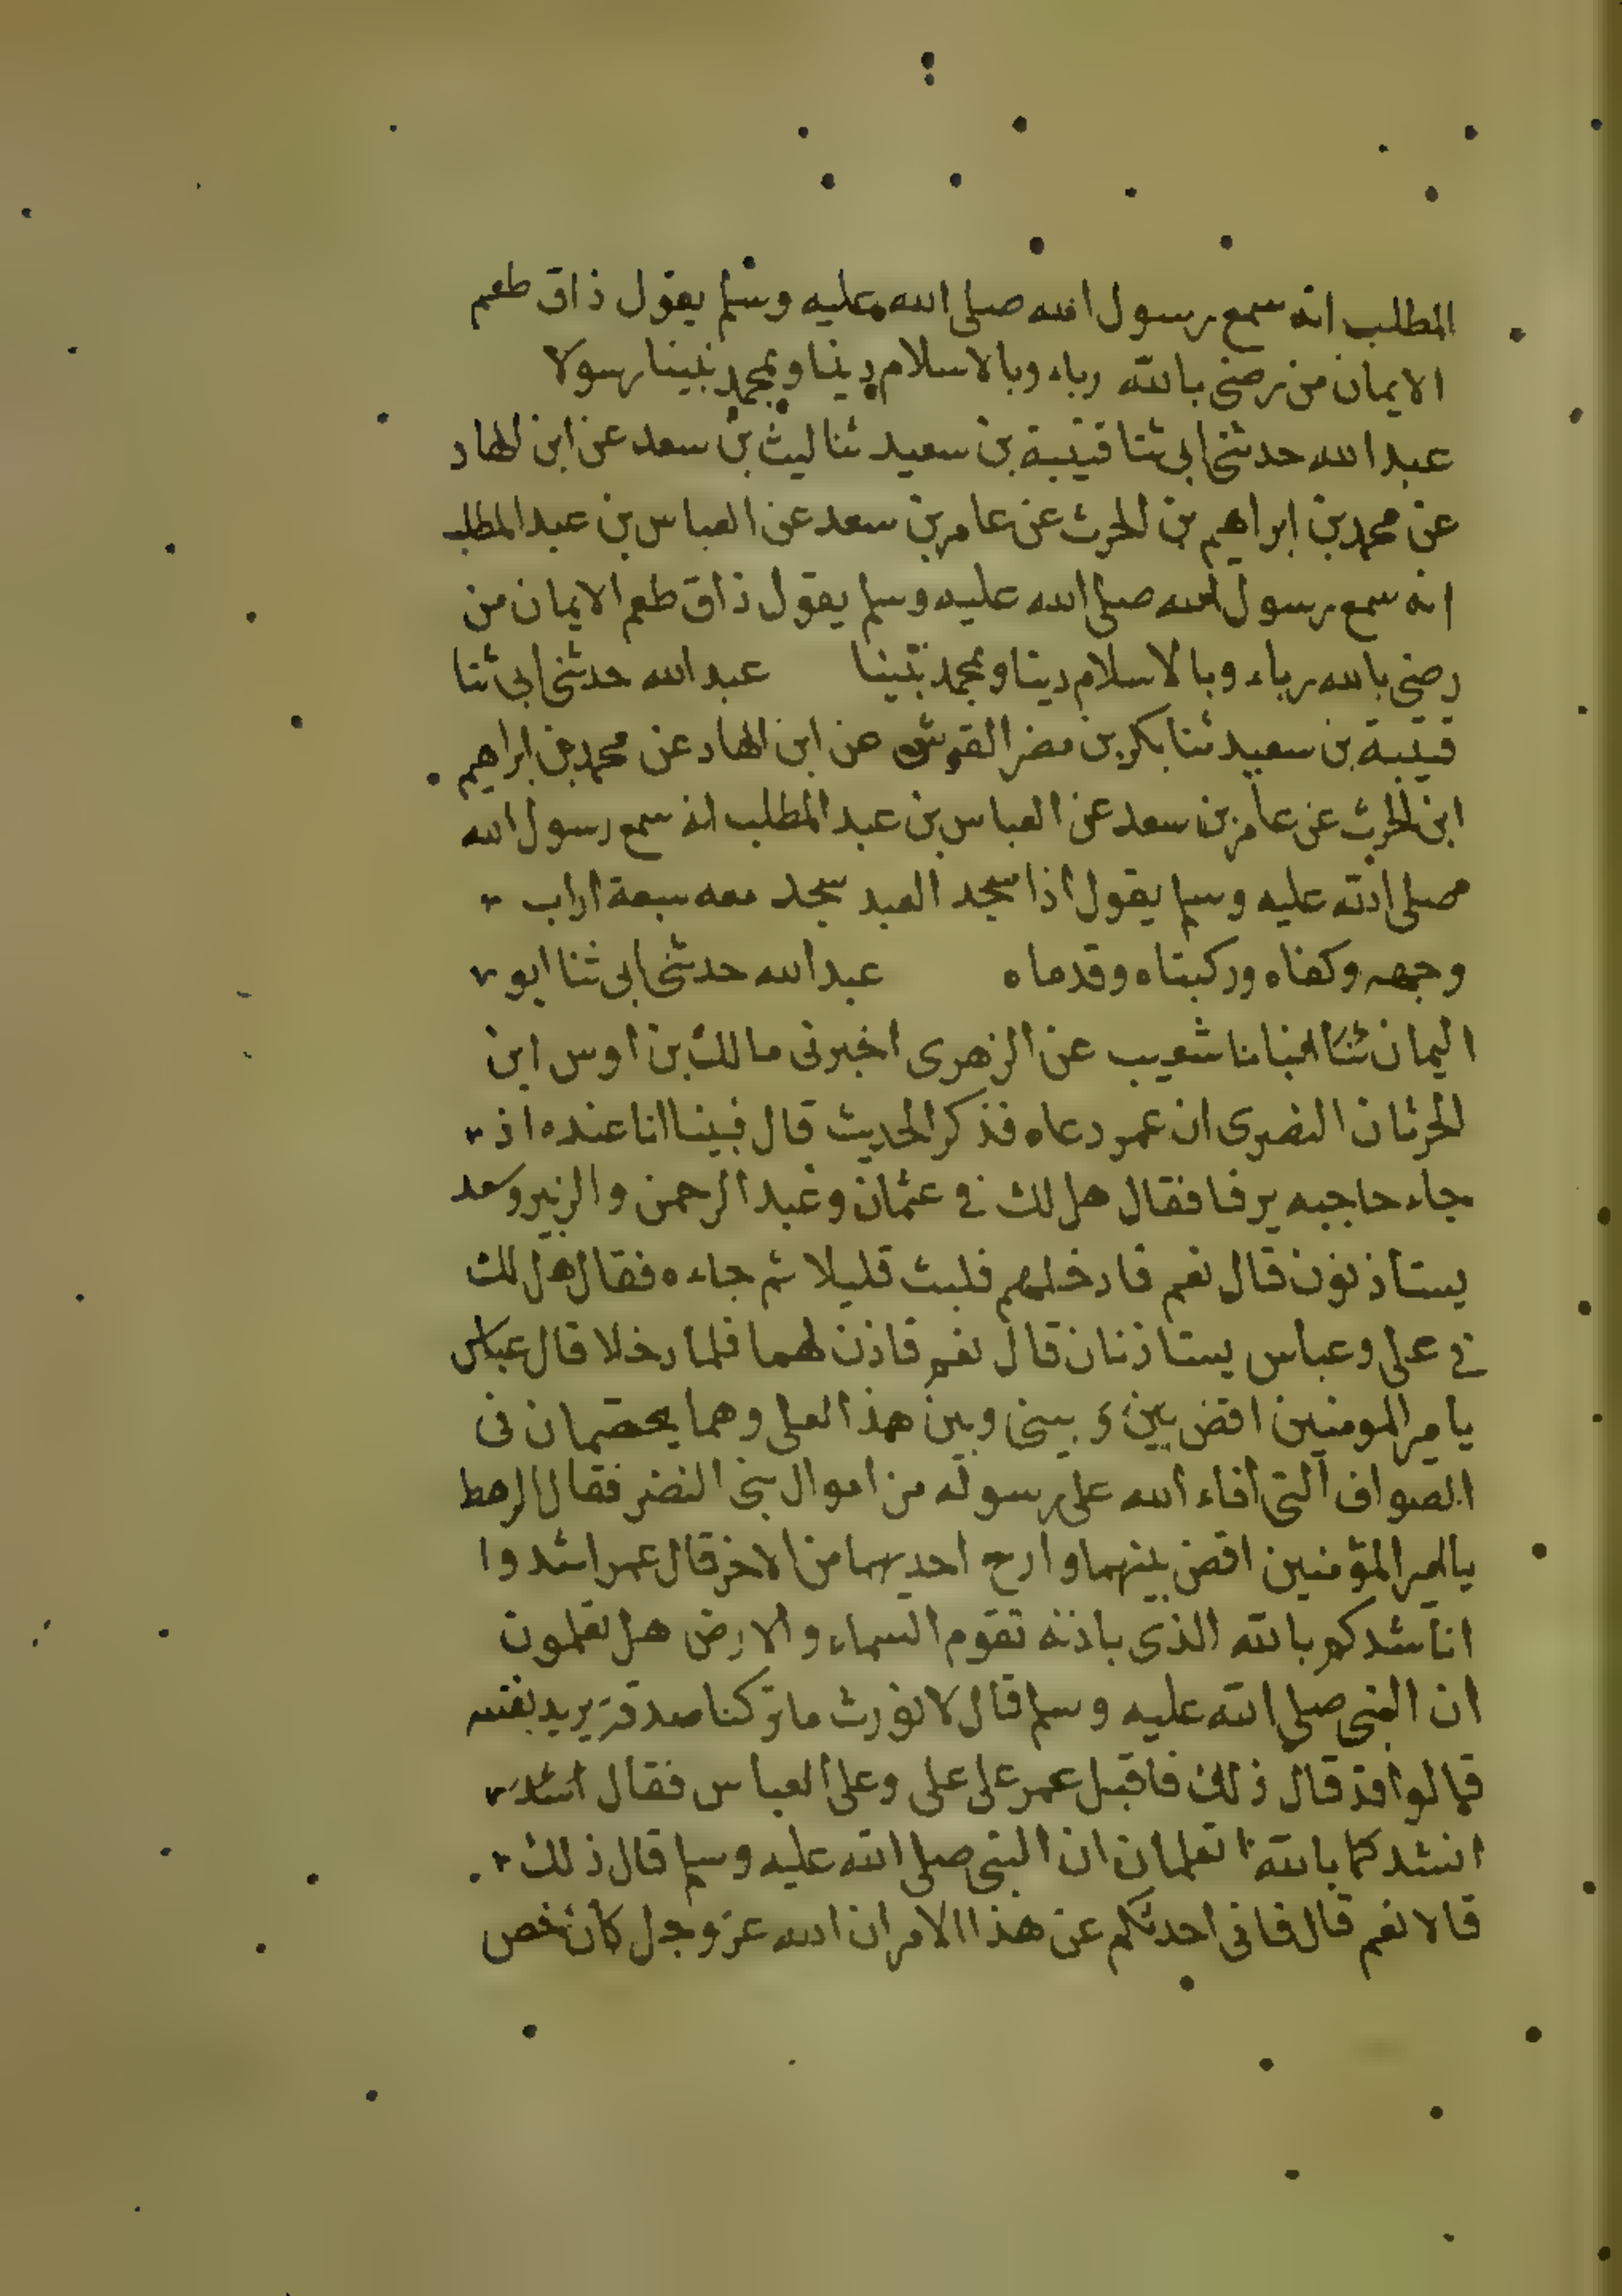 المطلب انه سمع رسول الله صلى الله عليه وسلم يقول ذاق طعم
الايمان من رضى بالله رباء وبالاسلام دينا وبمحمد نبينا رسولا
عبد الله حدثنى ابى ثنا قتيبة بن سعيد ثنا ليث بن سعد عن ابن الهاد
عن محمد بن ابراهيم بن الحرث عن عامر بن سعد عن العباس بن عبد المطلب
انه سمع رسول الله صلى الله عليه وسلم يقول ذاق طعم الايمان من
رضى بالله رباء وبالاسلام دينا وبمحمد نبينا عبد الله حدثنى ابى ثنا
قتيبة بن سعيد ثنا بكر بن مضر القرشى عن ابن الهاد عن محمد بن ابراهيم
ابن الحرث عن عامر بن سعد عن العباس بن عبد المطلب انه سمع رسول الله
صلى الله عليه وسلم يقول اذا سجد العبد سجد معه سبعة اراب
وجهه وكفاه وركبتاه وقدماه عبد الله حدثنى ابى ثنا ابو
اليمان ثنا انبانا شعيب عن الزهرى اخبرنى مالك بن اوس ابن
الحرثان النضرى ان عمر دعاه فذكر الحديث قال فبينا انا عنده اذ
جاء حاجبه يرفا فقال هل لك فى عثمان وعبد الرحمن والزبير وسعد
يستاذنون قال نعم فادخلهم فلبث قليلا ثم جاءه فقال هل لك
فى على وعباس يستاذنان قال نعم فاذن لهما فلما دخلا قال عباس
يا مير المومنين اقض بين وبينى وبين هذا لعلى وهما يختصمان فى
الصواف التى افاء الله على رسوله من اموال بنى النضر فقال الرهط
يا امير المؤمنين اقض بينهما وارح احديهما من الاخر قال عمر اشدوا
اناشدكم بالله الذى باذنه تقوم السماء والارض هل تعلمون
ان النبى صلى الله عليه وسلم قال لا نورث ما تركنا صدقة يريد نفسه
قالوا قد قال ذلك فاقبل عمر على على وعلى العباس فقال
انشدكما بالله اتعلمان ان النبى صلى الله عليه وسلم قال ذلك
قالا نعم قال فانى احدثكم عن هذا الامر ان الله عز وجل كان خص